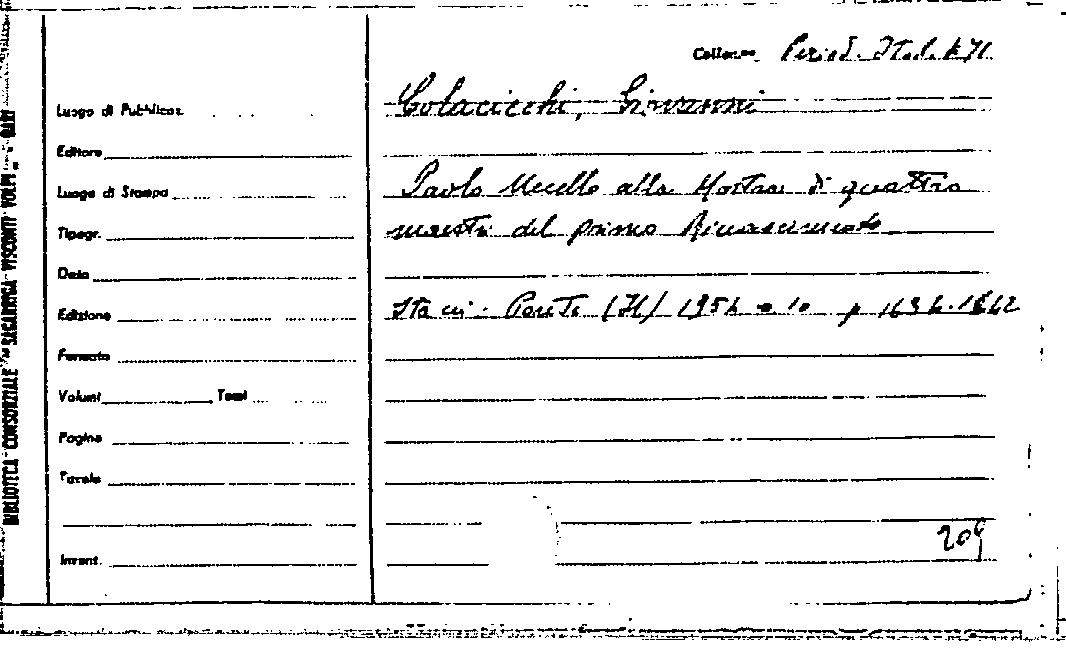 BIBLIOTECA CONSORZIALE "SAGARRIGA VISCONTI VOLPI" - BARI
Collocaz. Period. Ital. 471
Luogo di Pubblicaz.
Colacicchi, Giovanni
Editore
Luogo di Stampa
Paolo Uccello alla Mostra di quattro
Tipogr.
maestri del primo Rinascimento
Data
Edizione
1954 n 10 p
Formato
Volumi Tomi
Pagine
Tavole
209
Invent.